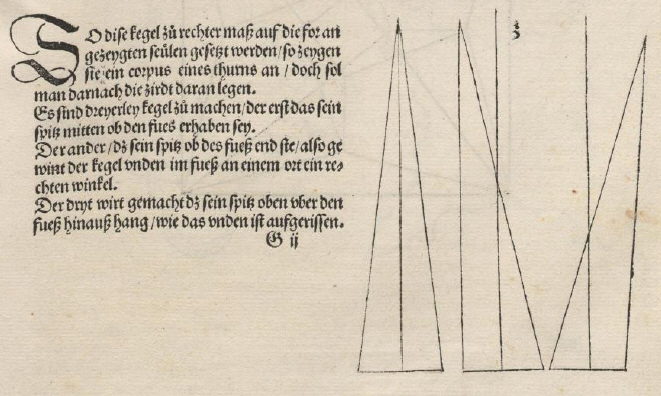 SO dise kegel zů rechter maß auf die for an
gezeygten seülen gesetzt werden/so zeygen
sie ein corpus eines thurns an/doch sol
man darnach die zirdt daran legen.
Es sind dreyerley kegel zů machen/der erst das sein
spitz mitten ob den fues erhaben sey.
Der ander/dz sein spitz ob des fueß end ste/also ge
wint der kegel vnden im fueß an einem ort ein re-
chten winkel.
Der dryt wirt gemacht dz sein spitz oben vber den
fueß hinauß hang/wie das vnden ist aufgerissen.
G ij
3